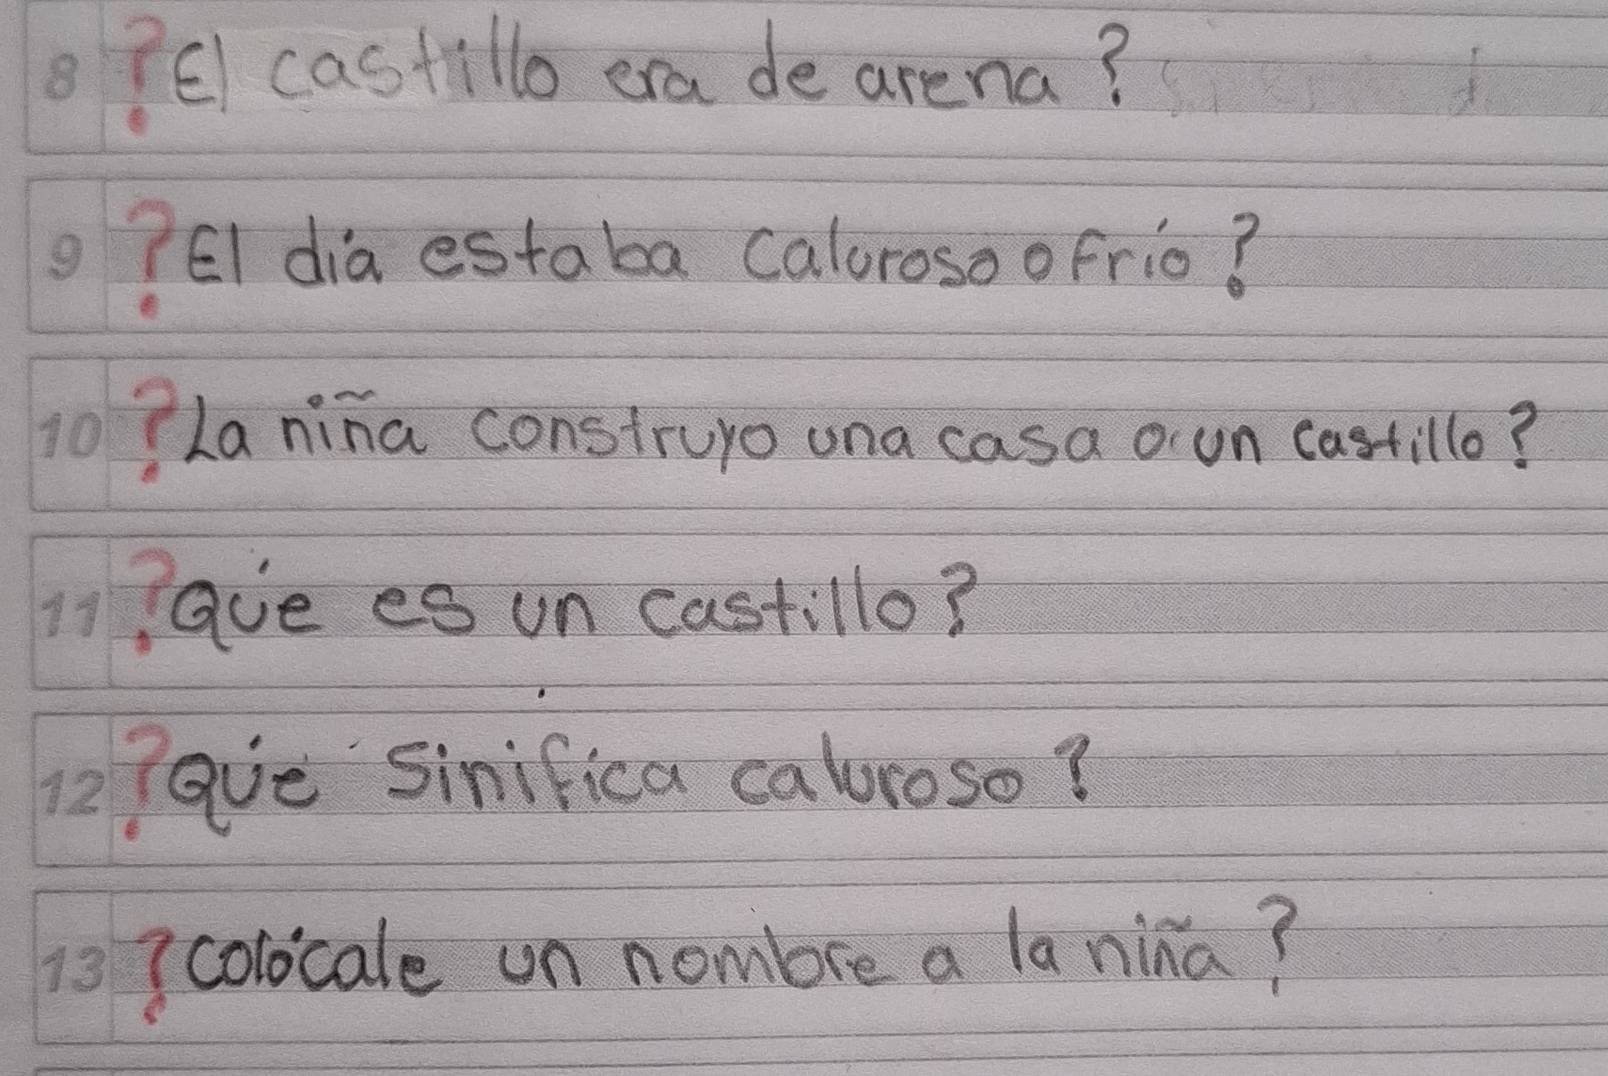 8 ?El castillo era de arena?
9 ?El día estaba caluroso o frío?
10 ?La niña construyo una casa o un castillo?
11 ?Qúe es un castillo?
12 ?Qúe sinifica caluroso?
13 ?colócale un nombre a la niña?